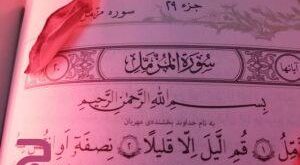 جزء ۲۹
سوره مزمل
سُورَةُ الْمُزَّمِّل
۲۰
بِسْمِ اللَّهِ الرَّحْمَٰنِ الرَّحِيمِ
به نام خداوند بخشنده‌ی مهربان
مِّلُ ۱ قُمِ الَّيْلَ إِلَّا قَلِيلًا ۲ نِّصْفَهُ أَوِ